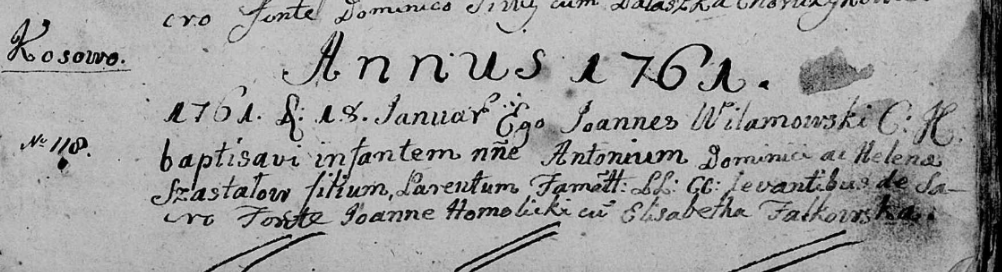 cro fonte Dominico cum
Kosowo.
Annus 1761.
1761. d. 18. Januar Ego Joannes Wilamowski C: H.
No 118.
baptisavi infantem nñe Antonium Dominici ac Helena
Szastałow filium Parentum Famãtt: LL: CC: levantibus de Sa-
cro Fonte Joanne Homolicki cũ Elisabetha Falkowska.